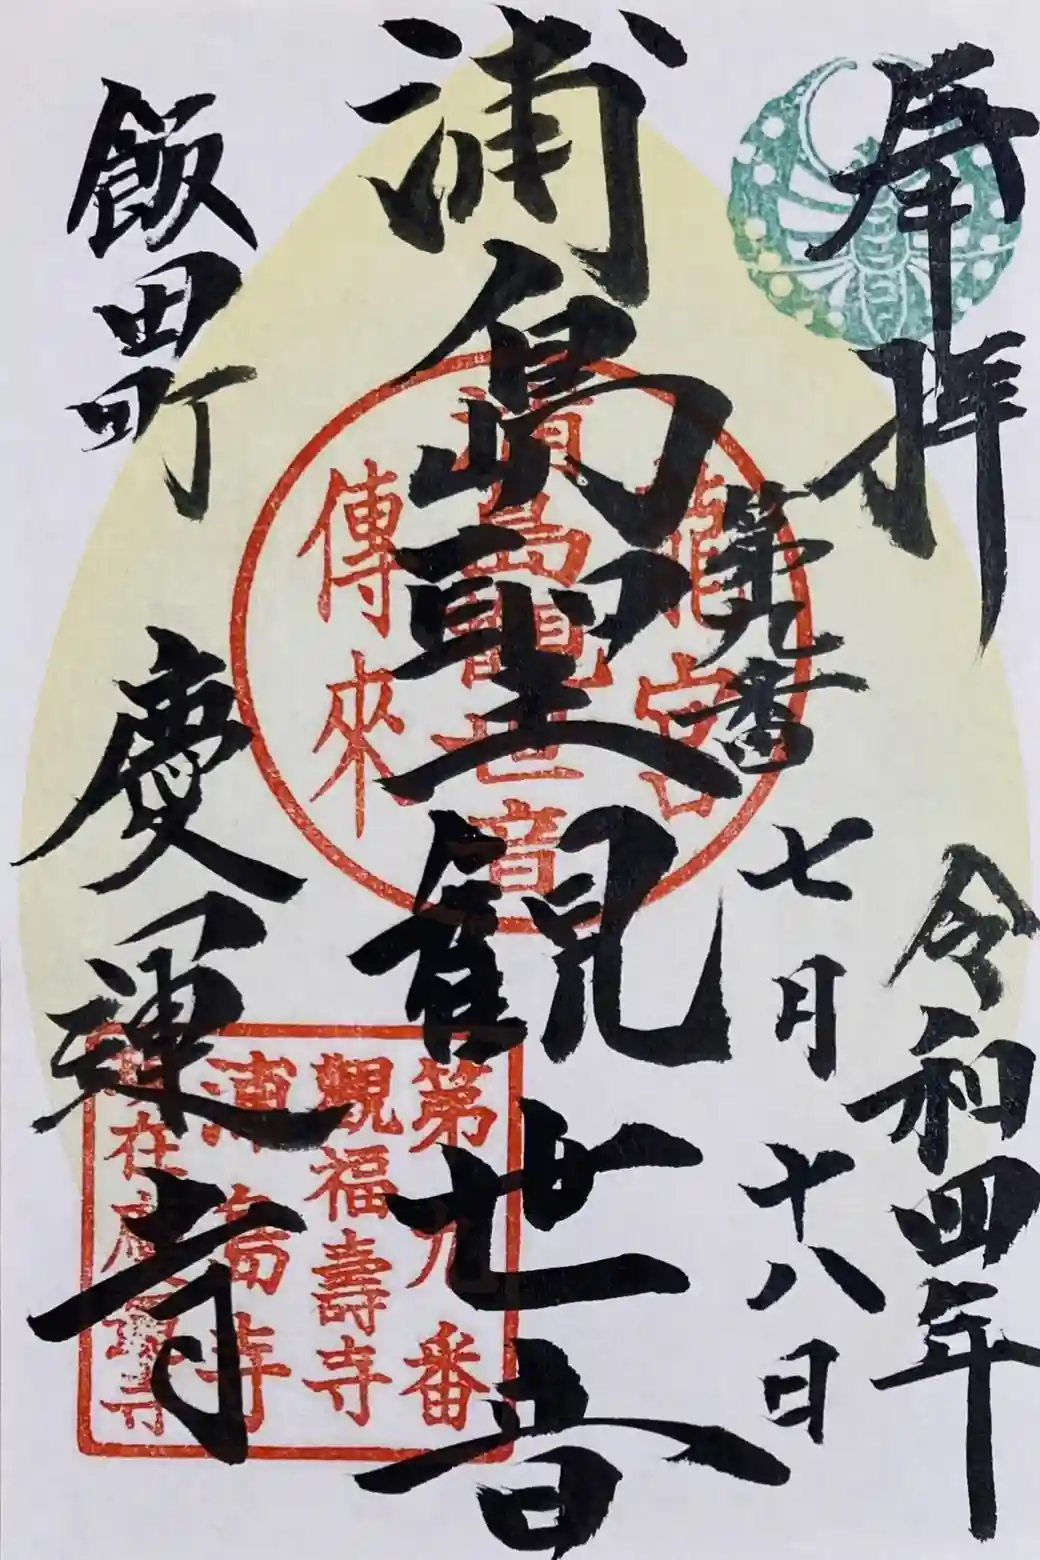 奉拝
令和四年
七月十八日
第九番
浦島聖観世音
飯田町
慶運寺
龍宮
浦島観世音
傳来
第九番
觀福壽寺
浦島寺
在慶運寺